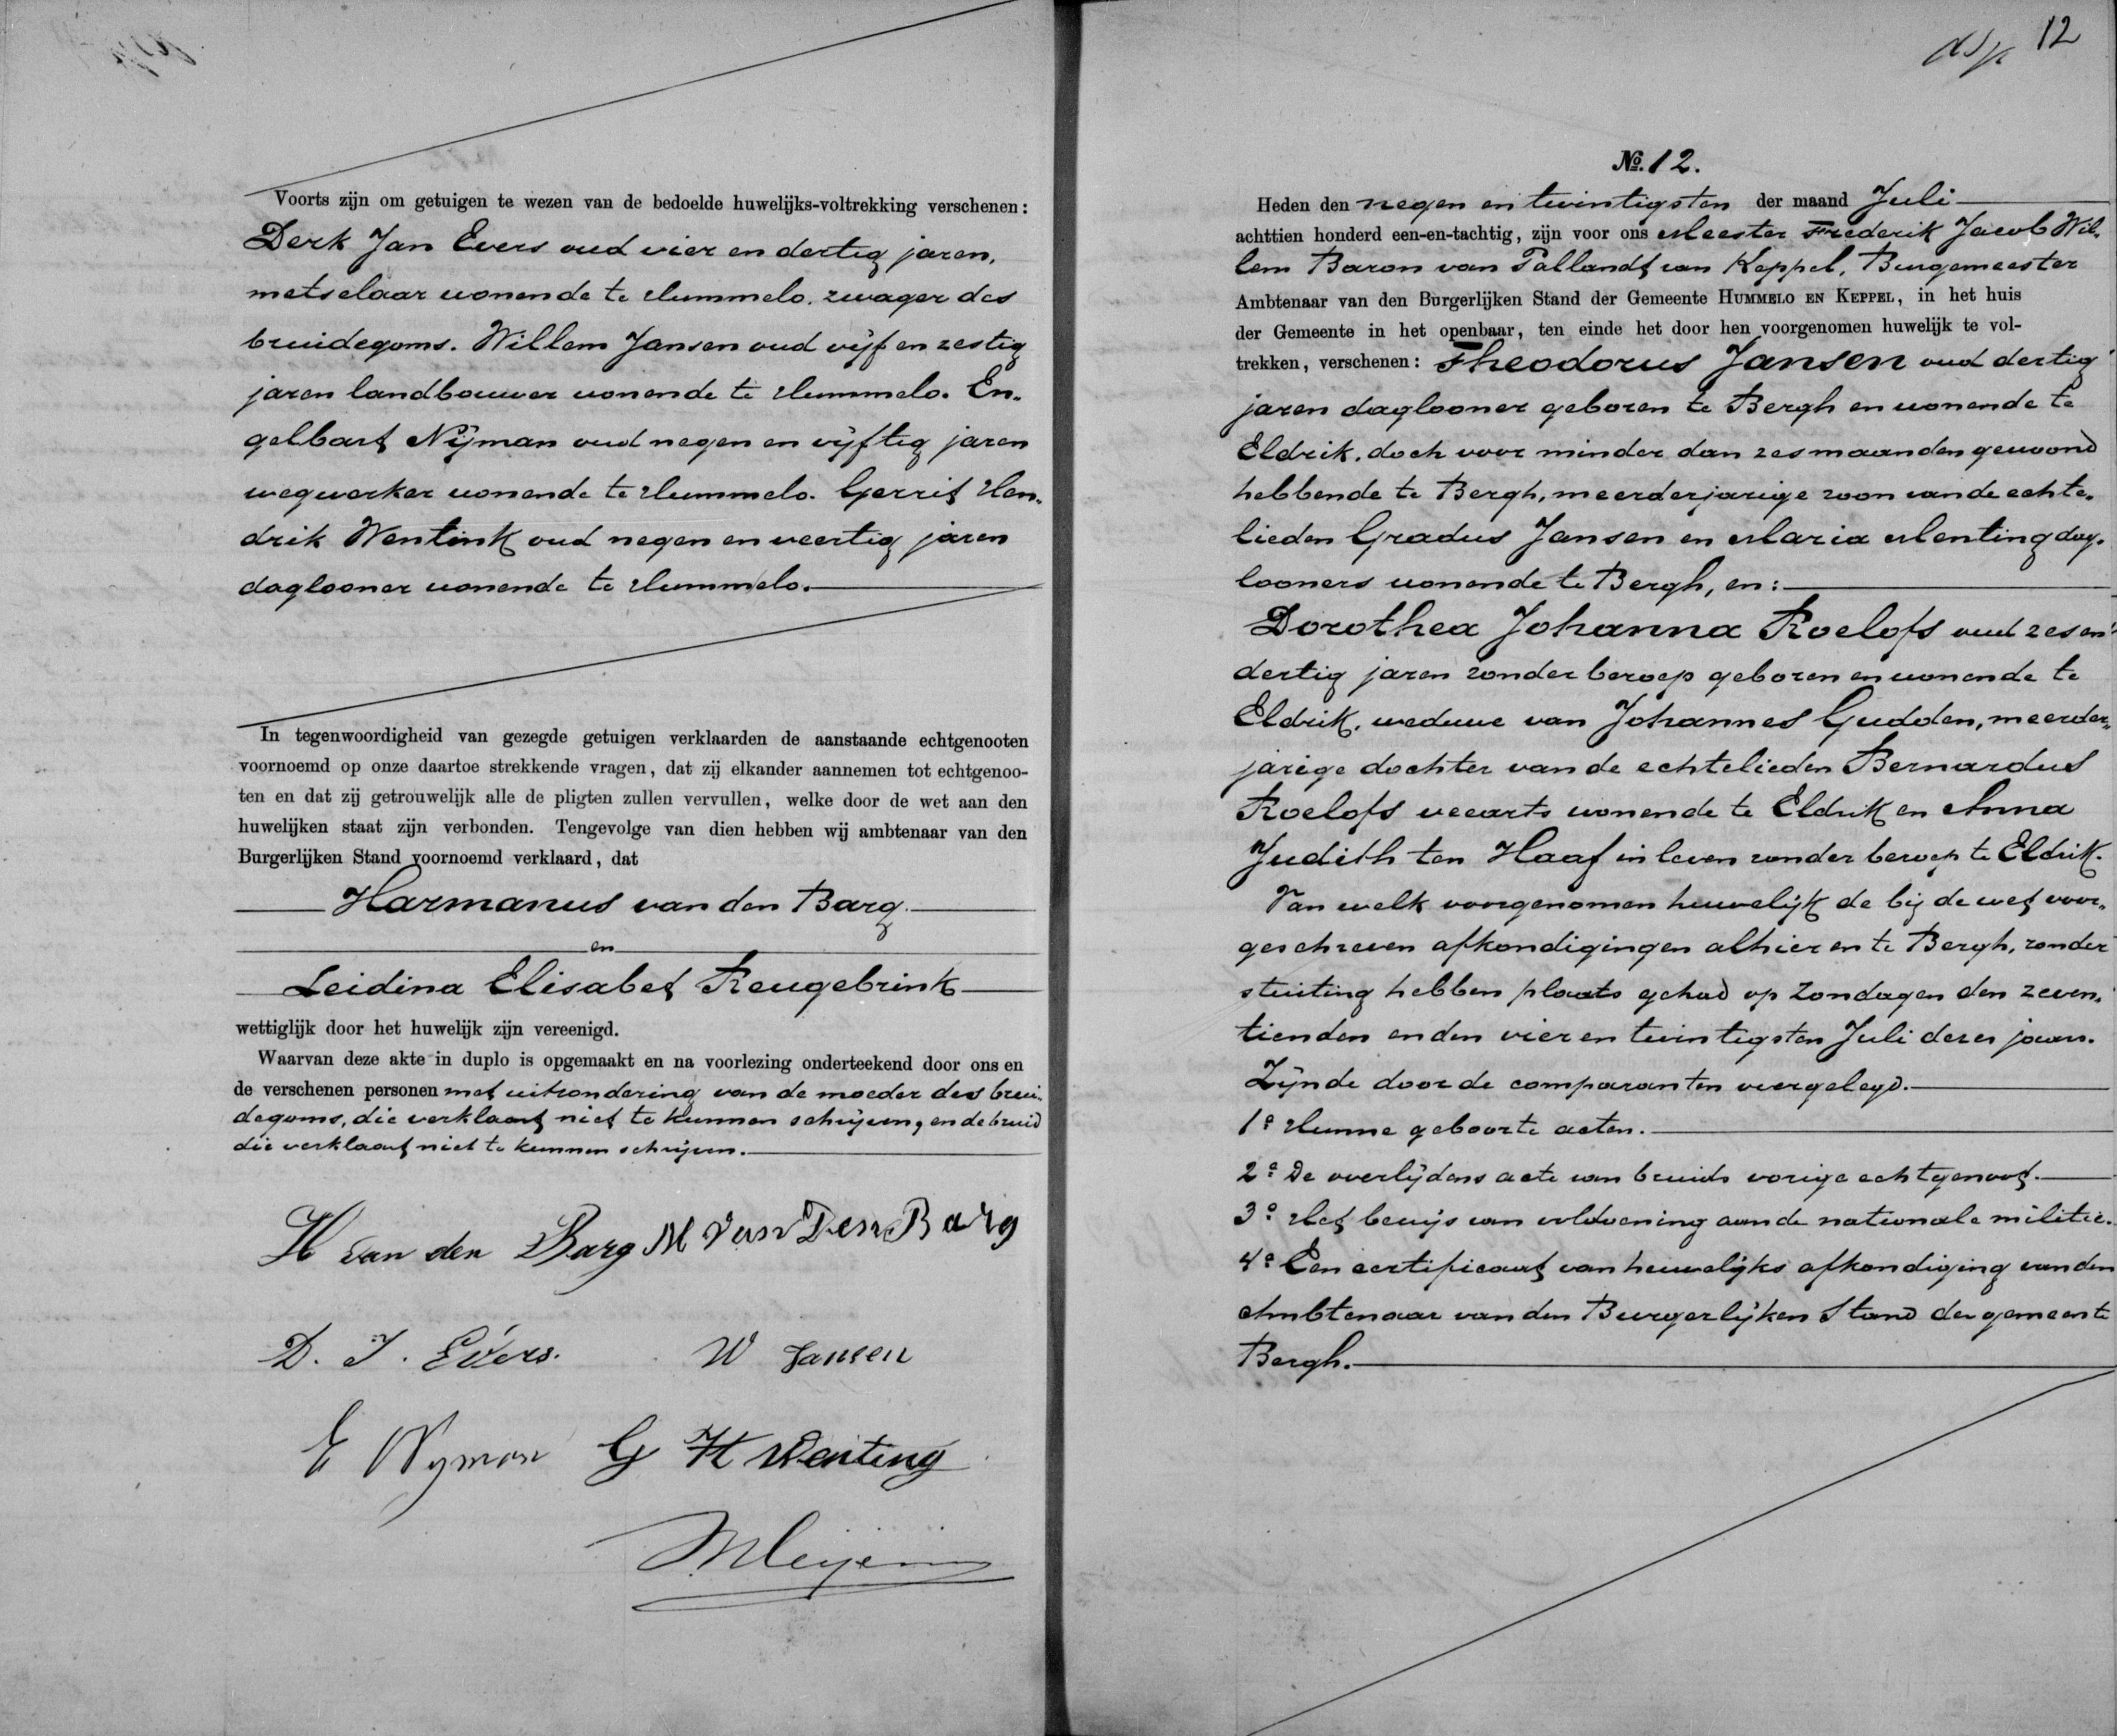 Voorts zijn om getuigen te wezen van de bedoelde huwelijks-voltrekking verschenen:
Derk Jan Evers oud vier en dertig jaren,
metselaar wonende te Hummelo, zwager des
bruidegoms. Willem Jansen oud vijf en zestig
jaren landbouwer wonende te Hummelo. En-
gelbart Nijman oud negen en vijftig jaren
wegwerker wonende te Hummelo. Gerrit Hen-
drik Wentink oud negen en veertig jaren
daglooner wonende te Hummelo.
In tegenwoordigheid van gezegde getuigen verklaarden de aanstaande echtgenooten
voornoemd op onze daartoe strekkende vragen, dat zij elkander aannemen tot echtgenoo-
ten en dat zij getrouwelijk alle de pligten zullen vervullen, welke door de wet aan den
huwelijken staat zijn verbonden. Tengevolge van dien hebben wij ambtenaar van den
Burgerlijken Stand voornoemd verklaard, dat
Harmanus van den Barg
en
Leidina Elisabet Reugebrink
wettiglijk door het huwelijk zijn vereenigd.
Waarvan deze akte in duplo is opgemaakt en na voorlezing onderteekend door ons en
de verschenen personen met uitzondering van de moeder des brui-
degoms, die verklaart niet te kunnen schrijven, en de bruid
die verklaart niet te kunnen schrijven.
H van den Barg M Van Den Barg
D. J. Evers. W Jansen
E Nyman G H Wenting
12
No. 12.
Heden den negen en twintigsten der maand Juli
achttien honderd een-en-tachtig, zijn voor ons Meester Frederik Jacob Wil-
lem Baron van Pallandt van Keppel, Burgemeester
Ambtenaar van den Burgerlijken Stand der Gemeente HUMMELO EN KEPPEL, in het huis
der Gemeente in het openbaar, ten einde het door hen voorgenomen huwelijk te vol-
trekken, verschenen: Theodorus Jansen oud dertig
jaren daglooner geboren te Bergh en wonende te
Eldrik, doch voor minder dan zes maanden gewoond
hebbende te Bergh, meerderjarige zoon van de echte-
lieden Gradus Jansen en Maria Menting dag-
looners wonende te Bergh, en:
Dorothea Johanna Roelofs oud zes en
dertig jaren zonder beroep geboren en wonende te
Eldrik, weduwe van Johannes Gudden, meerder-
jarige dochter van de echtelieden Bernardus
Roelofs veearts wonende te Eldrik en Anna
Judith ten Haaf in leven zonder beroep te Eldrik.
Van welk voorgenomen huwelijk de bij de wet voor-
geschreven afkondigingen alhier en te Bergh, zonder
stuiting hebben plaats gehad op Zondagen den zeven-
tienden en den vier en twintigsten Juli dezes jaars.
Zijnde door de comparanten overgelegd.
1o Hunne geboorte acten.
2o De overlijdens acte van bruids vorige echtgenoot.
3o Het bewijs van voldoening aan de nationale militie.
4o Een certificaat van huwelijks afkondiging van den
Ambtenaar van den Burgerlijken Stand der gemeente
Bergh.